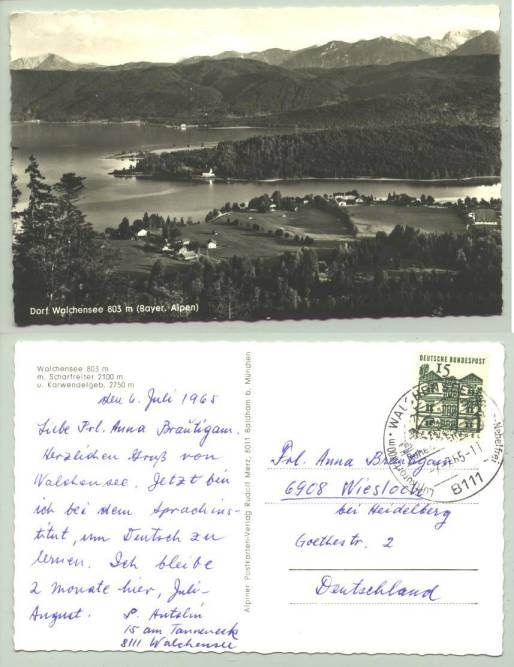 Dorf Walchensee 803 m (Bayer. Alpen)
Walchensee 803 m
m. Scharfreiter 2100 m
u. Karwendelgeb. 2750 m
den 6. Juli 1965
Liebe Frl. Anna Bräutigam.
Herzlichen Gruß von
Walchensee. Jetzt bin
ich bei dem Sprachins-
titut, um Deutsch zu
lernen. Ich bleibe
2 Monate hier, Juli-
August.
15 am Tanneneck
8111 Walchensee
Alpiner Postkarten-Verlag Rudolf Merz, 8011 Baldham b. München
DEUTSCHE BUNDESPOST
15
8111
Nebelfrei
Frl. Anna Bräutigam
6908 Wiesloch
bei Heidelberg
Goethestr. 2
Deutschland